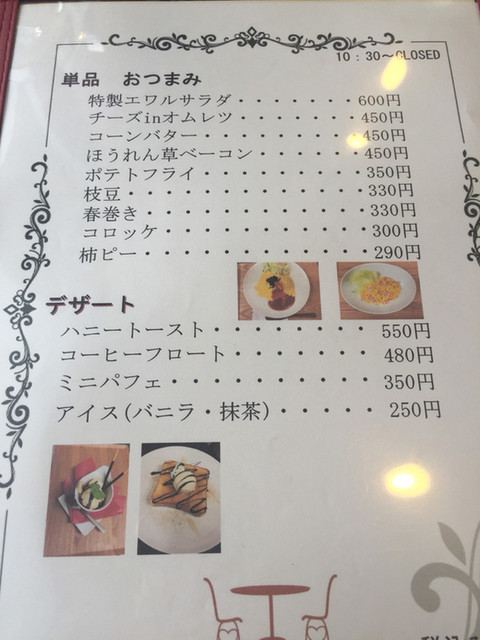 10：30～CLOSED
単品　おつまみ
特製エワルサラダ・・・・・・・600円
チーズinオムレツ・・・・・・・450円
コーンバター・・・・・・・・・450円
ほうれん草ベーコン・・・・・・・450円
ポテトフライ・・・・・・・・・350円
枝豆・・・・・・・・・・・・・330円
春巻き・・・・・・・・・・・・330円
コロッケ・・・・・・・・・・・300円
柿ピー・・・・・・・・・・・・290円
デザート
ハニートースト・・・・・・・・550円
コーヒーフロート・・・・・・・480円
ミニパフェ・・・・・・・・・・350円
アイス(バニラ・抹茶)・・・・・250円